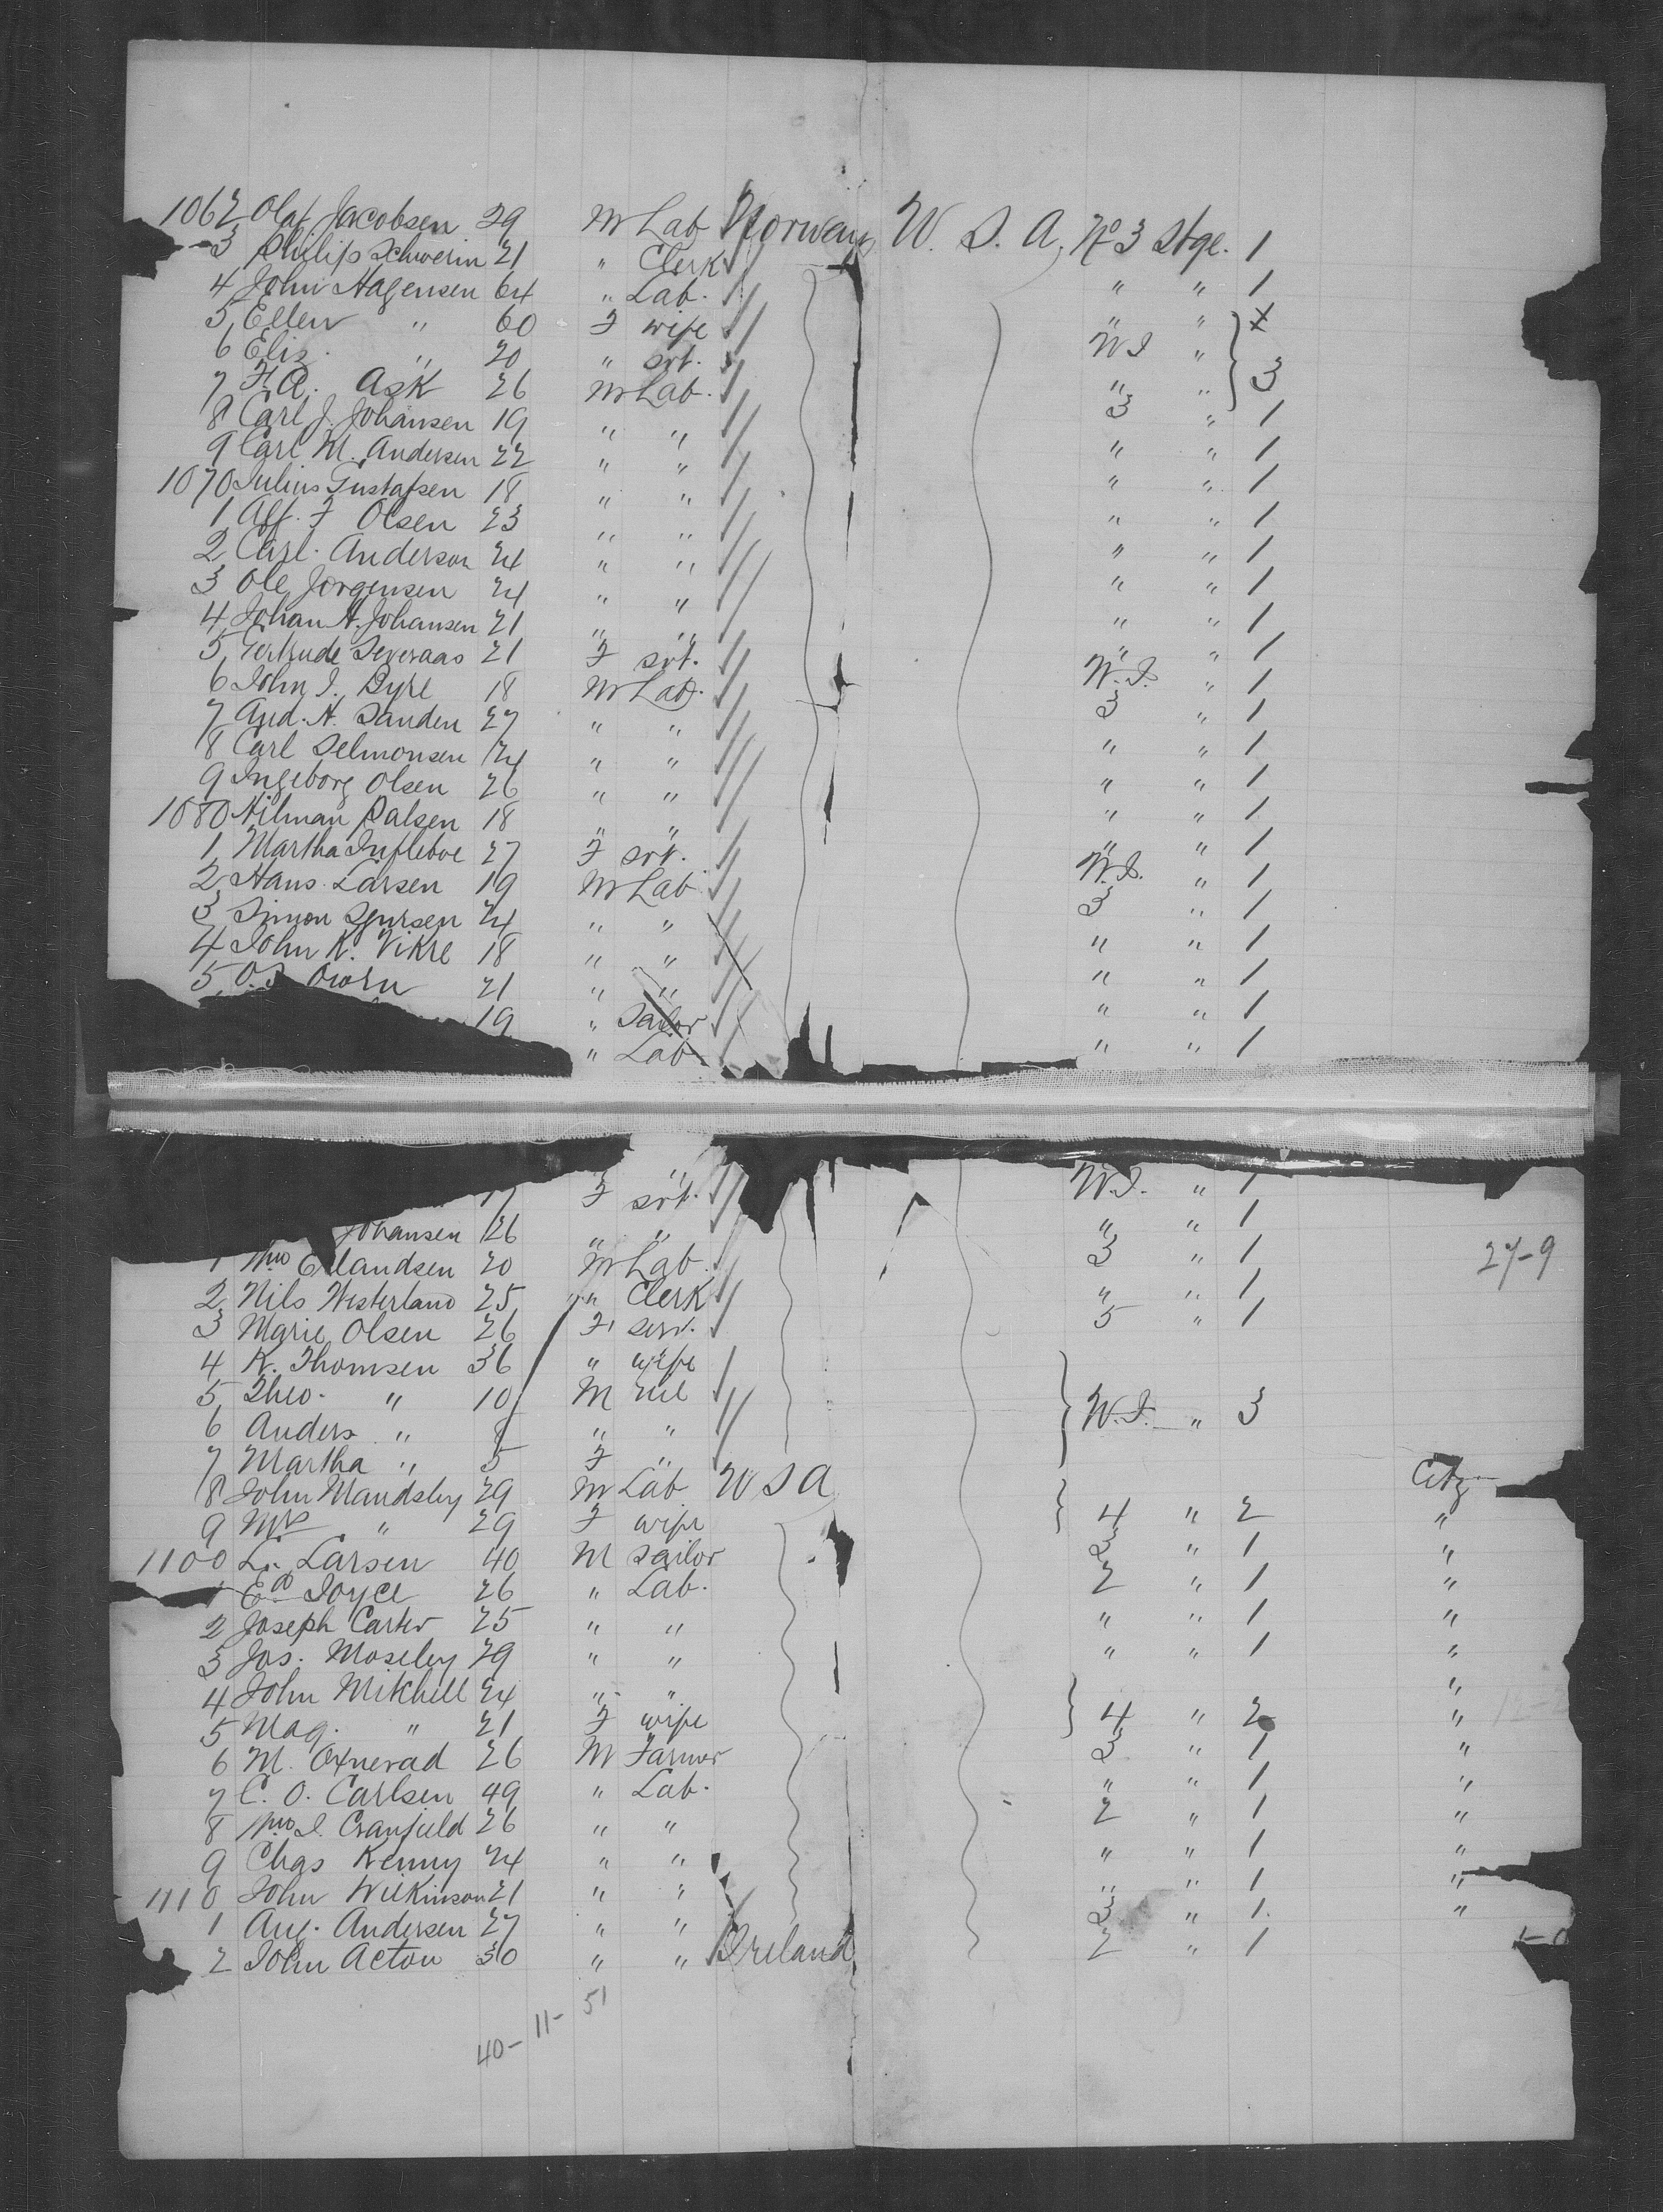 1062 Olaf Jacobsen 29 M Lab Norway U. S. A. No 3 Stge. 1
3 Philip Schwerin 21 " Clerk " " 1
4 John Hagensen 64 " Lab. " "
5 Ellen " 60 F wife W S "
6 Elis. " 20 " svt. " " 3
7 F. A. Ask 26 M Lab. 3 " 1
8 Carl J. Johansen 19 " " " " 1
9 Carl M. Andersen 22 " " " " 1
1070 Julius Gustafsen 18 " " " " 1
1 Alf. F Olsen 23 " " " " 1
2 Carl. Anderson 24 " " " " 1
3 Ole Jorgensen 24 " " " " 1
4 Johan A. Johansen 21 " " " " 1
5 Gertrude Severaas 21 F svt. W. S. " 1
6 John I. Dyre 18 M Lab. 3 " 1
7 And. N. Sanden 27 " " " " 1
8 Carl Selmonsen 24 " " " " 1
9 Ingeborg Olsen 26 " " " " 1
1080 Hilman Palsen 18 " " " " 1
1 Martha 27 F svt. W. S. " 1
2 Hans Larsen 19 M Lab 3 " 1
3 Simon 24 " " " " 1
4 John K. Vikre 18 " " " " 1
5 21 " " " " 1
19 " Sailor " " 1
" Lab
F svt. W. S. " 1
Johansen 26 " " " " 1
1 Erlandsen 20 M Lab. 3 " 1 27-9
2 Nils Westerland 25 " Clerk " " 1
3 Marie Olsen 26 F serv. 5 " 1
4 K. Thomsen 36 " wife
5 Theo. " 10 M W. S. " 3
6 Anders " 8 " "
7 Martha " 5 F "
8 John Maudsley 29 M Lab U S A Citz
9 Mrs " 29 F wife 4 " 2 "
1100 L. Larsen 40 M Sailor 3 " 1 "
1 Ed Joyce 26 " Lab. 2 " 1 "
2 Joseph Carter 25 " " " " 1 "
3 Jos. Moseley 29 " " " " 1 "
4 John Mikhell 24 " " "
5 Mag. " 21 F wife 4 " 2 "
6 M. Oxnevad 26 M Farmer 3 " 1 "
7 C. O. Carlsen 49 " Lab. " " 1 "
8 Cranfield 26 " " 2 " 1 "
9 Chas Kenny 24 " " " " 1 "
1110 John Wilkinson 21 " " " " 1 "
1 Aug. Andersen 27 " " 3 " 1 "
2 John Acton 30 " " Ireland 2 " 1
40- 11- 51